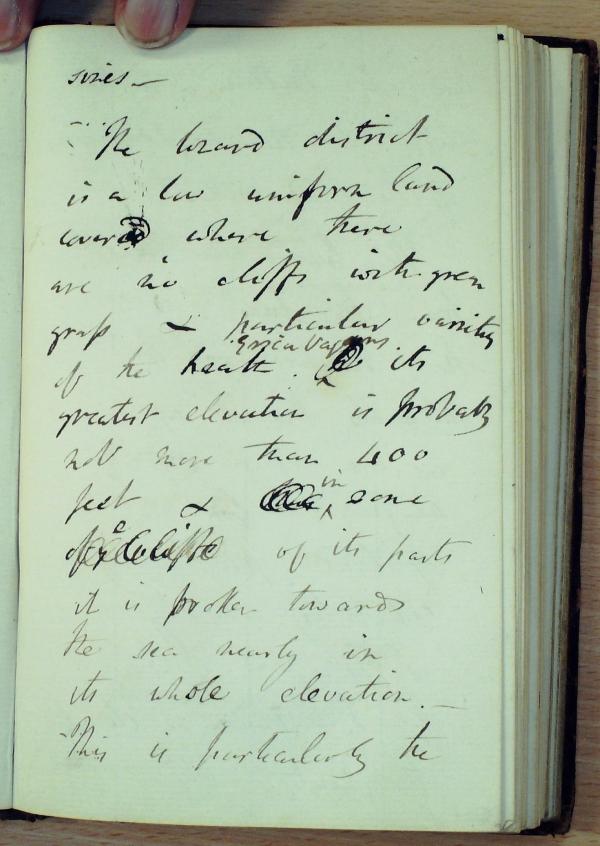 sizes –
The Lizard district
is a low uniform land
covered where there
are no cliffs with green
grass & particular variety
Erica Vagans
of the heath. its
greatest elevation is probably
not more than 400
feet & in some
of its parts
it is broken towards
the sea nearly in
its whole elevation. –
This is particularly the